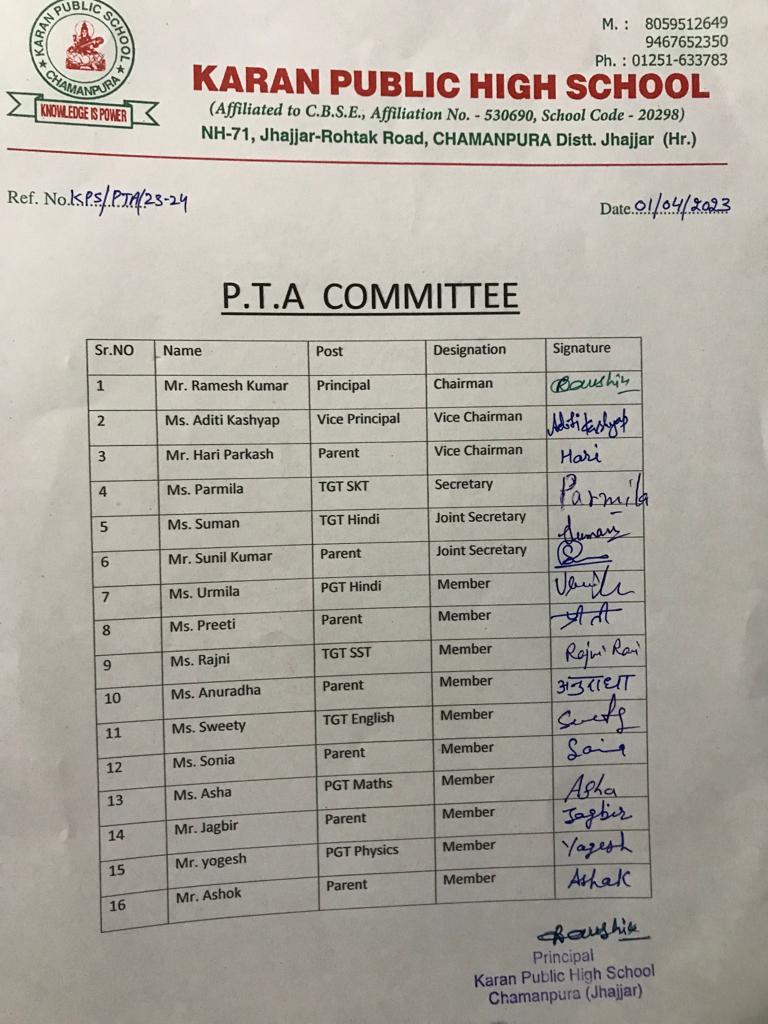 KARAN PUBLIC SCHOOL
★ CHAMANPURA ★
KNOWLEDGE IS POWER
M. : 8059512649
9467652350
Ph. : 01251-633783
KARAN PUBLIC HIGH SCHOOL
(Affiliated to C.B.S.E., Affiliation No. - 530690, School Code - 20298)
NH-71, Jhajjar-Rohtak Road, CHAMANPURA Distt. Jhajjar (Hr.)
Ref. No. KPS/PTA/23-24 Date 01/04/2023
P.T.A COMMITTEE
Sr.NO Name Post Designation Signature
1 Mr. Ramesh Kumar Principal Chairman
2 Ms. Aditi Kashyap Vice Principal Vice Chairman Aditi Kashyap
3 Mr. Hari Parkash Parent Vice Chairman Hari
4 Ms. Parmila TGT SKT Secretary Parmila
5 Ms. Suman TGT Hindi Joint Secretary Suman
6 Mr. Sunil Kumar Parent Joint Secretary
7 Ms. Urmila PGT Hindi Member
8 Ms. Preeti Parent Member
9 Ms. Rajni TGT SST Member Rajni Rani
10 Ms. Anuradha Parent Member अनुराधा
11 Ms. Sweety TGT English Member Sweety
12 Ms. Sonia Parent Member
13 Ms. Asha PGT Maths Member Asha
14 Mr. Jagbir Parent Member Jagbir
15 Mr. yogesh PGT Physics Member Yogesh
16 Mr. Ashok Parent Member Ashok
Principal
Karan Public High School
Chamanpura (Jhajjar)